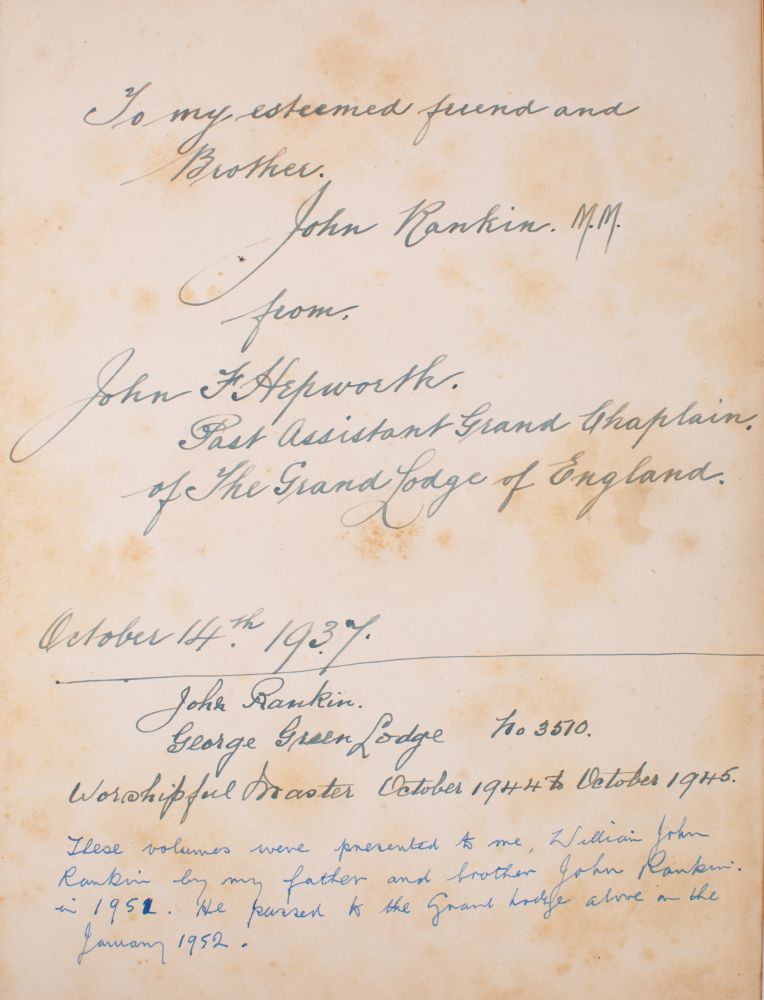 To my esteemed friend and
Brother.
John Rankin. M.M.
from.
John F Hepworth.
Past Assistant Grand Chaplain.
of The Grand Lodge of England.
October 14.th 1937.
John Rankin.
George Green Lodge No 3510.
Worshipful Master October 1944 to October 1945.
These volumes were presented to me, William John
Rankin by my father and brother John Rankin.
in 1951. He passed to the Grand Lodge above on the
January 1952.